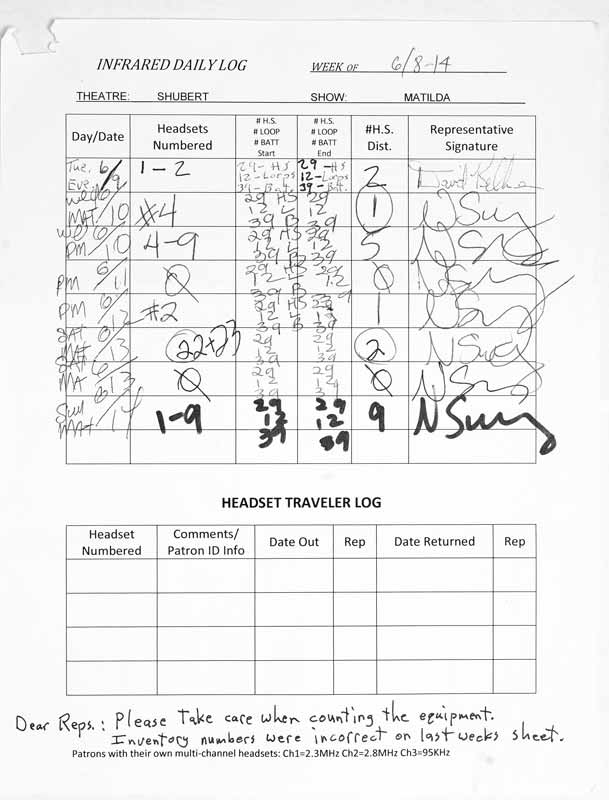 INFRARED DAILY LOG WEEK OF 6/8-14
THEATRE: SHUBERT SHOW: MATILDA
Day/Date Headsets Numbered # H.S. # LOOP # BATT Start # H.S. # LOOP # BATT End #H.S. Dist. Representative Signature
Tue, 6/9 Eve. 1-2 29-HS 12-Loops 39-Batt. 29-HS 12-Loops 39-Batt. 2 David
Wed 6/10 MAT #4 29 HS 12 L 39 B 29 12 39 1
Wed 6/10 PM 4-9 29 HS 12 L 39 B 29 12 39 5
6/11 PM 0 29 HS 12 L 39 B 29 12 39 0
6/12 PM #2 29 HS 12 L 39 B 29 12 39 1
SAT 6/13 MAT 22+23 29 12 39 29 12 39 2
SAT 6/13 0 29 12 39 29 12 39 0
Sun MAT 6/14 1-9 29 12 39 29 12 39 9
HEADSET TRAVELER LOG
Headset Numbered Comments/ Patron ID Info Date Out Rep Date Returned Rep
Dear Reps.: Please take care when counting the equipment.
Inventory numbers were incorrect on last weeks sheet.
Patrons with their own multi-channel headsets: Ch1=2.3MHz Ch2=2.8MHz Ch3=95KHz